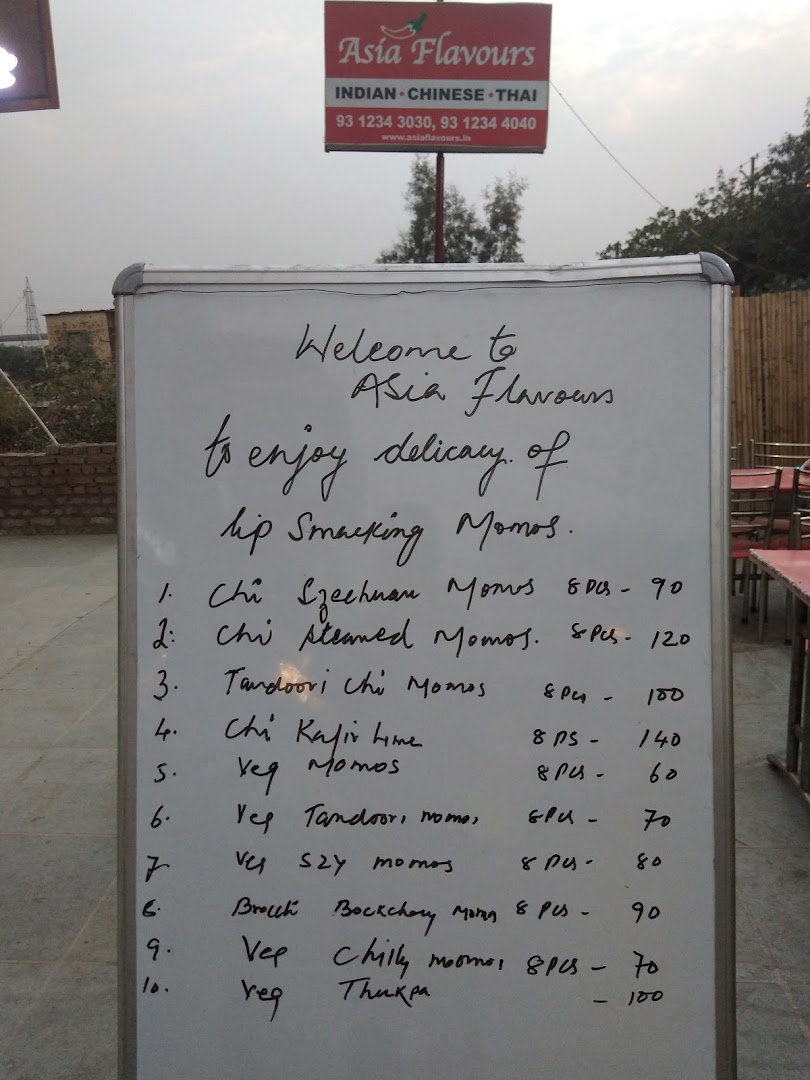 Asia Flavours
INDIAN • CHINESE • THAI
93 1234 3030, 93 1234 4040
www.asiaflavours.in
Welcome to
Asia Flavours
to enjoy delicacy of
lip Smacking Momos.
1. Chi Szechuan Momos 8 Pcs - 90
2: Chi steamed Momos. 8 Pcs - 120
3. Tandoori Chi Momos 8 Pcs - 100
4. Chi Kafir Lime 8 PS - 140
5. Veg Momos 8 Pcs - 60
6. Veg Tandoori momos 8 Pcs - 70
7 Veg SZY momos 8 Pcs - 80
8. Brocli Bockchoy Momos 8 Pcs - 90
9. Veg Chilly moomos 8 Pcs - 70
10. Veg Thukpa - 100